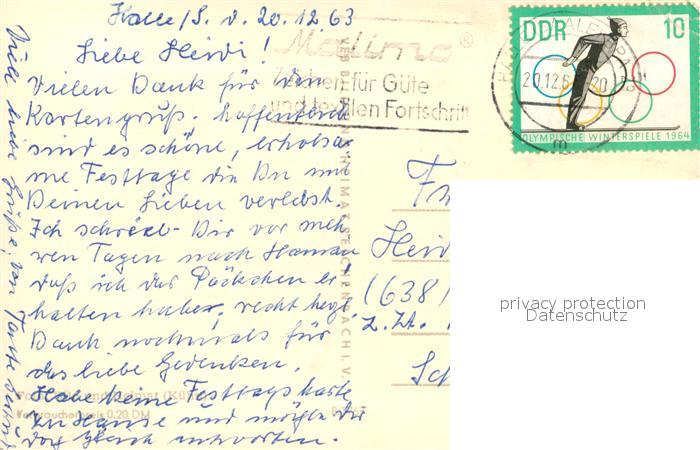 Halle/S. d. 20.12.63
Liebe Heidi!
Vielen Dank für den
Kartengruß. hoffentlich
sind es schöne, erholsa-
me Festtage die Du mit
Deinen Lieben verlebst.
Ich schrieb Dir vor meh-
reren Tagen nach
daß ich das Päckchen er-
halten habe, recht herzl.
Dank nochmals für
das liebe Gedenken.
Habe keine Festtagskarte
zu Hause und möchte Dir
doch gleich antworten.
Viele liebe Grüße, von Tante
Malimo®
Zeichen für Güte
und textilen Fortschritt
DDR 10
OLYMPISCHE WINTERSPIELE 1964
20.12.6
20
Heid
(638)
z. Zt.
Sch
privacy protection
Datenschutz
Verbraucherpreis 0,20 DM